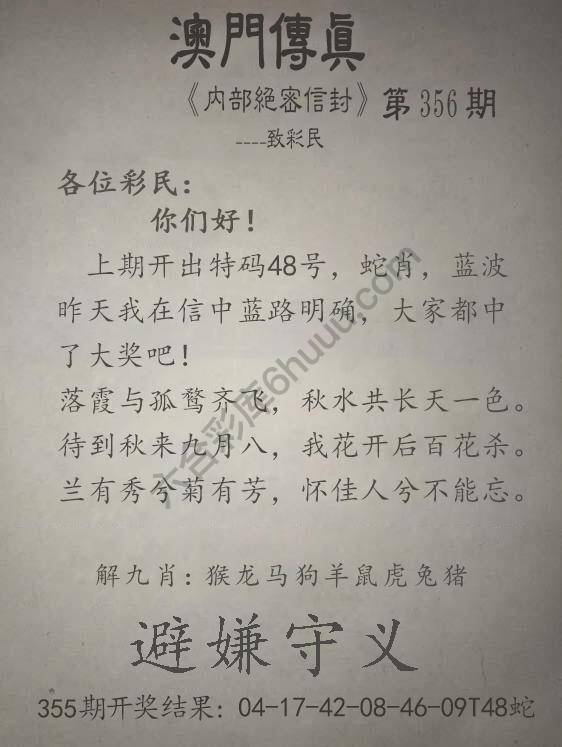 澳門傳眞
《内部絕密信封》第356期
----致彩民
各位彩民：
你们好！
上期开出特码48号，蛇肖，蓝波
昨天我在信中蓝路明确，大家都中
了大奖吧！
落霞与孤鹜齐飞，秋水共长天一色。
待到秋来九月八，我花开后百花杀。
兰有秀兮菊有芳，怀佳人兮不能忘。
六合彩库6huuu.com
解九肖：猴龙马狗羊鼠虎兔猪
避嫌守义
355期开奖结果：04-17-42-08-46-09T48蛇